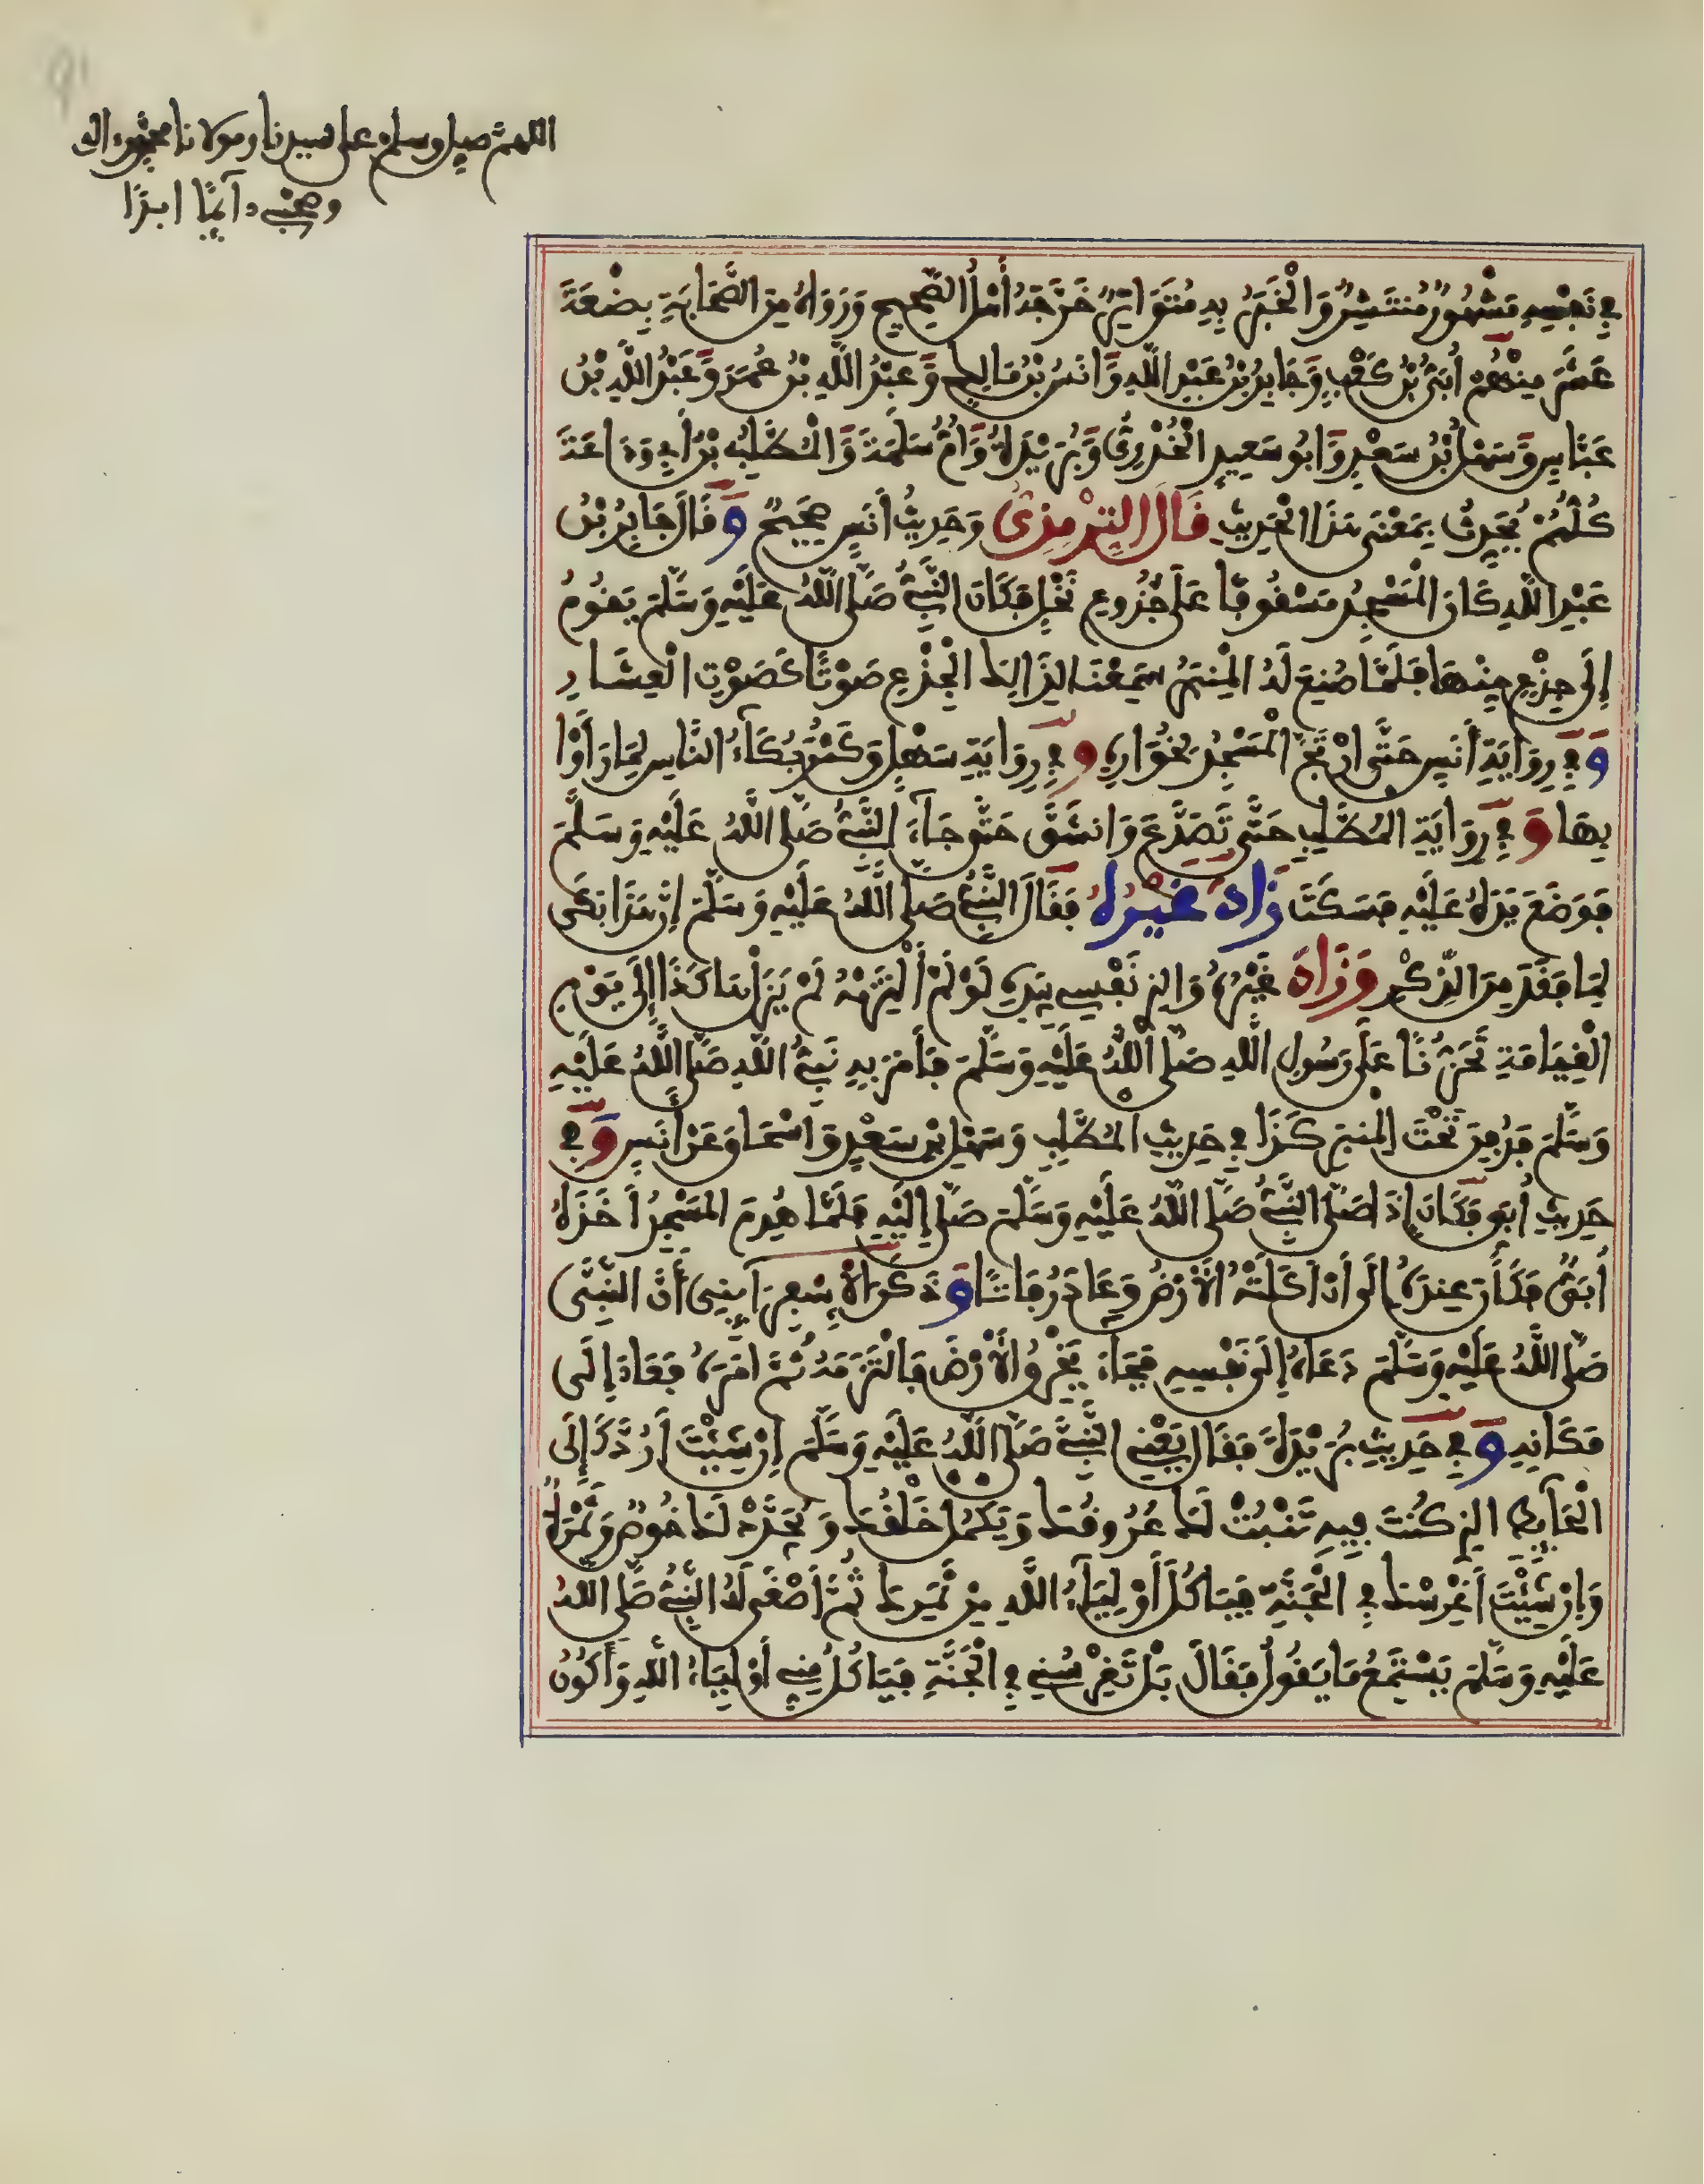 اللهم صل وسلم على سيدنا ومولانا محمد واله
وصحبه دآئما ابدا
في نَفْسِهِ مَشْهُورٌ مُنْتَشِرٌ وَالْخَبَرُ بِهِ مُتَوَاتِرٌ خَرَّجَهُ أَهْلُ الصَّحِيحِ وَرَوَاهُ مِنَ الصَّحَابَةِ بِضْعَةَ
عَشَرَ مِنْهُمْ أُبَيُّ بْنُ كَعْبٍ وَجَابِرُ بْنُ عَبْدِ اللَّهِ وَانَسُ بْنُ مَالِكٍ وَعَبْدُ اللَّهِ بْنُ عُمَرَ وَعَبْدُ اللَّهِ بْنُ
عَبَّاسٍ وَسَهْلُ بْنُ سَعْدٍ وَابُو سَعِيدٍ الْخُدْرِيُّ وَبُرَيْدَةُ وَامُّ سَلَمَةَ وَالْمُطَّلِبُ بْنُ أَبِي وَدَاعَةَ
كُلُّهُمْ يُحَدِّثُ بِمَعْنَى هَذَا الْحَدِيثِ قَالَ التِّرْمِذِيُّ وَحَدِيثُ أَنَسٍ صَحِيحٌ وَقَالَ جَابِرُ بْنُ
عَبْدِ اللَّهِ كَانَ الْمَسْجِدُ مَسْقُوفًا عَلَى جُذُوعِ نَخْلٍ فَكَانَ النَّبِيُّ صَلَّى اللَّهُ عَلَيْهِ وَسَلَّمَ يَقُومُ
إِلَى جِذْعٍ مِنْهَا فَلَمَّا صُنِعَ لَهُ الْمِنْبَرُ سَمِعْنَا لِذَالِكَ الْجِذْعِ صَوْتًا كَصَوْتِ الْعِشَارِ
وَفِي رِوَايَةِ أَنَسٍ حَتَّى ارْتَجَّ الْمَسْجِدُ بِخُوَارِهِ وَفِي رِوَايَةِ سَهْلٍ وَكَثُرَ بُكَآءُ النَّاسِ لِمَا رَأَوْا
بِهَا وَفِي رِوَايَةِ الْمُطَّلِبِ حَتَّى تَصَدَّعَ وَانْشَقَّ حَتَّى جَآءَ النَّبِيُّ صَلَّى اللَّهُ عَلَيْهِ وَسَلَّمَ
فَوَضَعَ يَدَهُ عَلَيْهِ فَسَكَتَ زَادَ غَيْرُهُ فَقَالَ النَّبِيُّ صَلَّى اللَّهُ عَلَيْهِ وَسَلَّمَ إِنَّ هَذَا بَكَى
لِمَا فَقَدَ مِنَ الذِّكْرِ وَزَادَ غَيْرُهُ وَالذِي نَفْسِي بِيَدِهِ لَوْ لَمْ أَلْتَزِمْهُ لَمْ يَزَلْ هَاكَذَا إِلَى يَوْمِ
الْقِيَامَةِ تَحَزُّنًا عَلَى رَسُولِ اللَّهِ صَلَّى اللَّهُ عَلَيْهِ وَسَلَّمَ فَأَمَرَ بِهِ نَبِيُّ اللَّهِ صَلَّى اللَّهُ عَلَيْهِ
وَسَلَّمَ فَدُفِنَ تَحْتَ الْمِنْبَرِ كَذَا فِي حَدِيثِ الْمُطَّلِبِ وَسَهْلِ بْنِ سَعْدٍ وَاسْحَاقَ عَنْ أَنَسٍ وَفِي
حَدِيثِ أُبَيٍّ فَكَانَ إِذَا صَلَّى النَّبِيُّ صَلَّى اللَّهُ عَلَيْهِ وَسَلَّمَ صَلَّى إِلَيْهِ فَلَمَّا هُدِمَ الْمَسْجِدُ أَخَذَهُ
أُبَيٌّ فَكَانَ عِنْدَهُ إِلَى أَنْ اكَلَتْهُ الْأَرْضُ وَعَادَ رُفَاتًا وَذَكَرَ الْإِسْفِرَآيِنِي أَنَّ النَّبِيَّ
صَلَّى اللَّهُ عَلَيْهِ وَسَلَّمَ دَعَاهُ إِلَى نَفْسِهِ فَجَآءَ يَخْرِقُ الْأَرْضَ فَالْتَزَمَهُ ثُمَّ امَرَهُ فَعَادَ إِلَى
مَكَانِهِ وَفِي حَدِيثِ بُرَيْدَةَ فَقَالَ يَعْنِي النَّبِيَّ صَلَّى اللَّهُ عَلَيْهِ وَسَلَّمَ إِنْ شِئْتَ أَرُدُّكَ إِلَى
الْحَآئِطِ الذِي كُنْتَ فِيهِ تَنْبُتْ لَكَ عُرُوقُكَ وَيَكْمُلْ خَلْقُكَ وَيُجَدَّدْ لَكَ خُوصٌ وَثَمْرَةٌ
وَإِنْ شِئْتَ أَغْرِسْكَ فِي الْجَنَّةِ فَيَاكُلَ أَوْلِيَآءُ اللَّهِ مِنْ ثَمَرِكَ ثُمَّ أَصْغَى لَهُ النَّبِيُّ صَلَّى اللَّهُ
عَلَيْهِ وَسَلَّمَ يَسْتَمِعُ مَا يَقُولُ فَقَالَ بَلْ تَغْرِسُنِي فِي الْجَنَّةِ فَيَاكُلُ مِنِّي أَوْلِيَآءُ اللَّهِ وَأَكُونُ